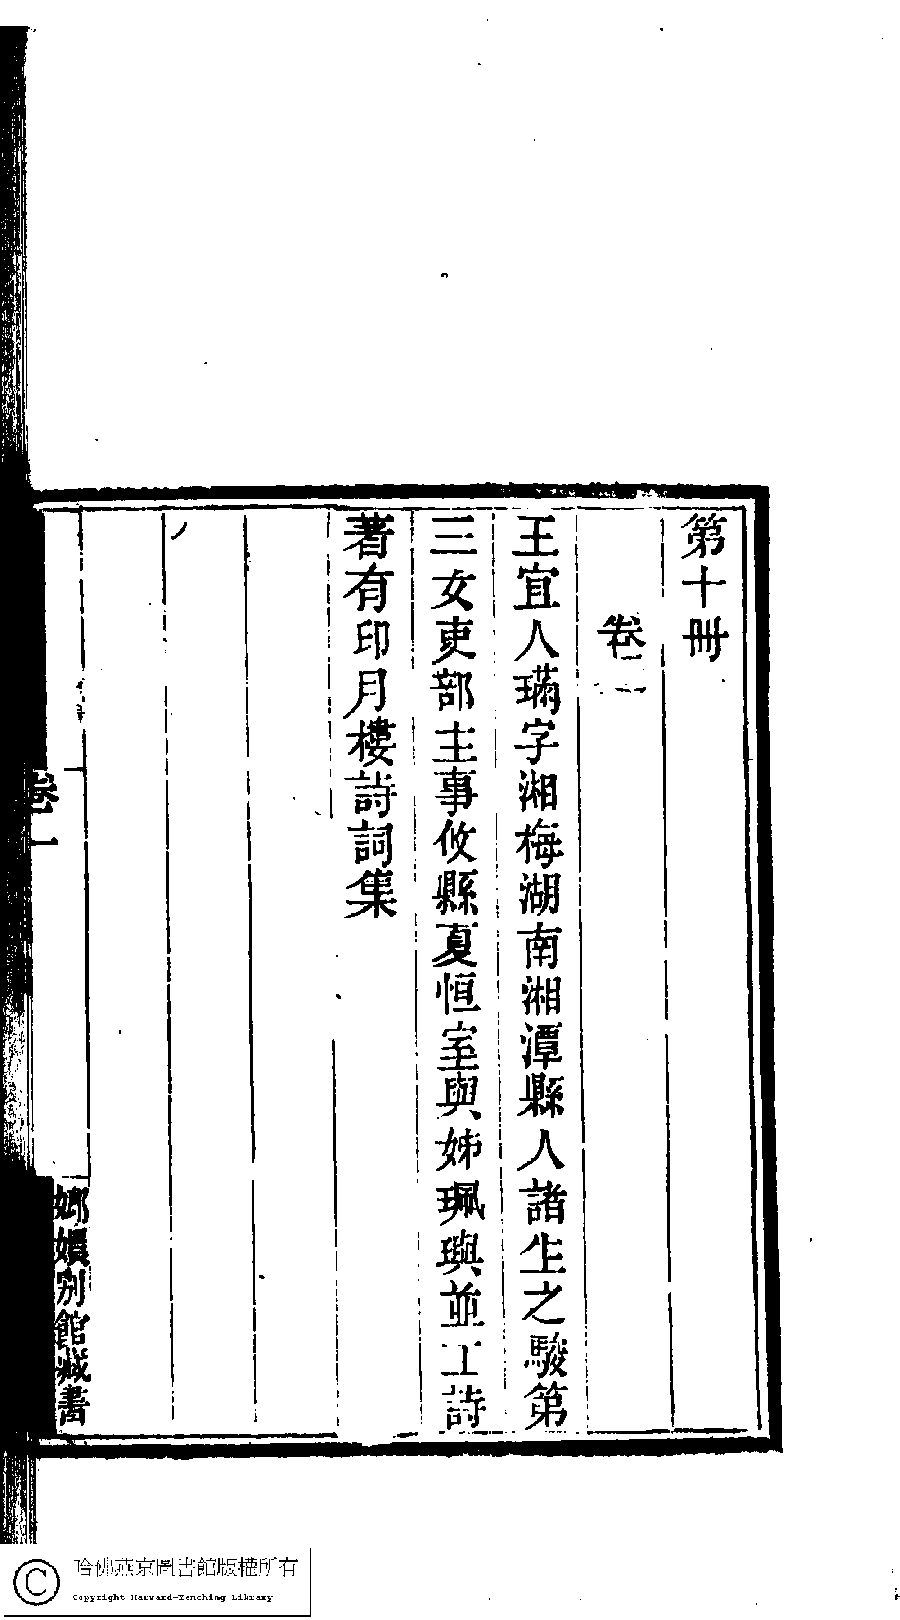 第十冊
卷一
王宜人璊字湘梅湖南湘潭縣人諸生之駿第
三女吏部主事攸縣夏恒室與姊珮璵並工詩
著有印月樓詩詞集
卷一
嫏嬛別館藏書
哈佛燕京圖書館版權所有
Copyright Harvard-Yenching Library